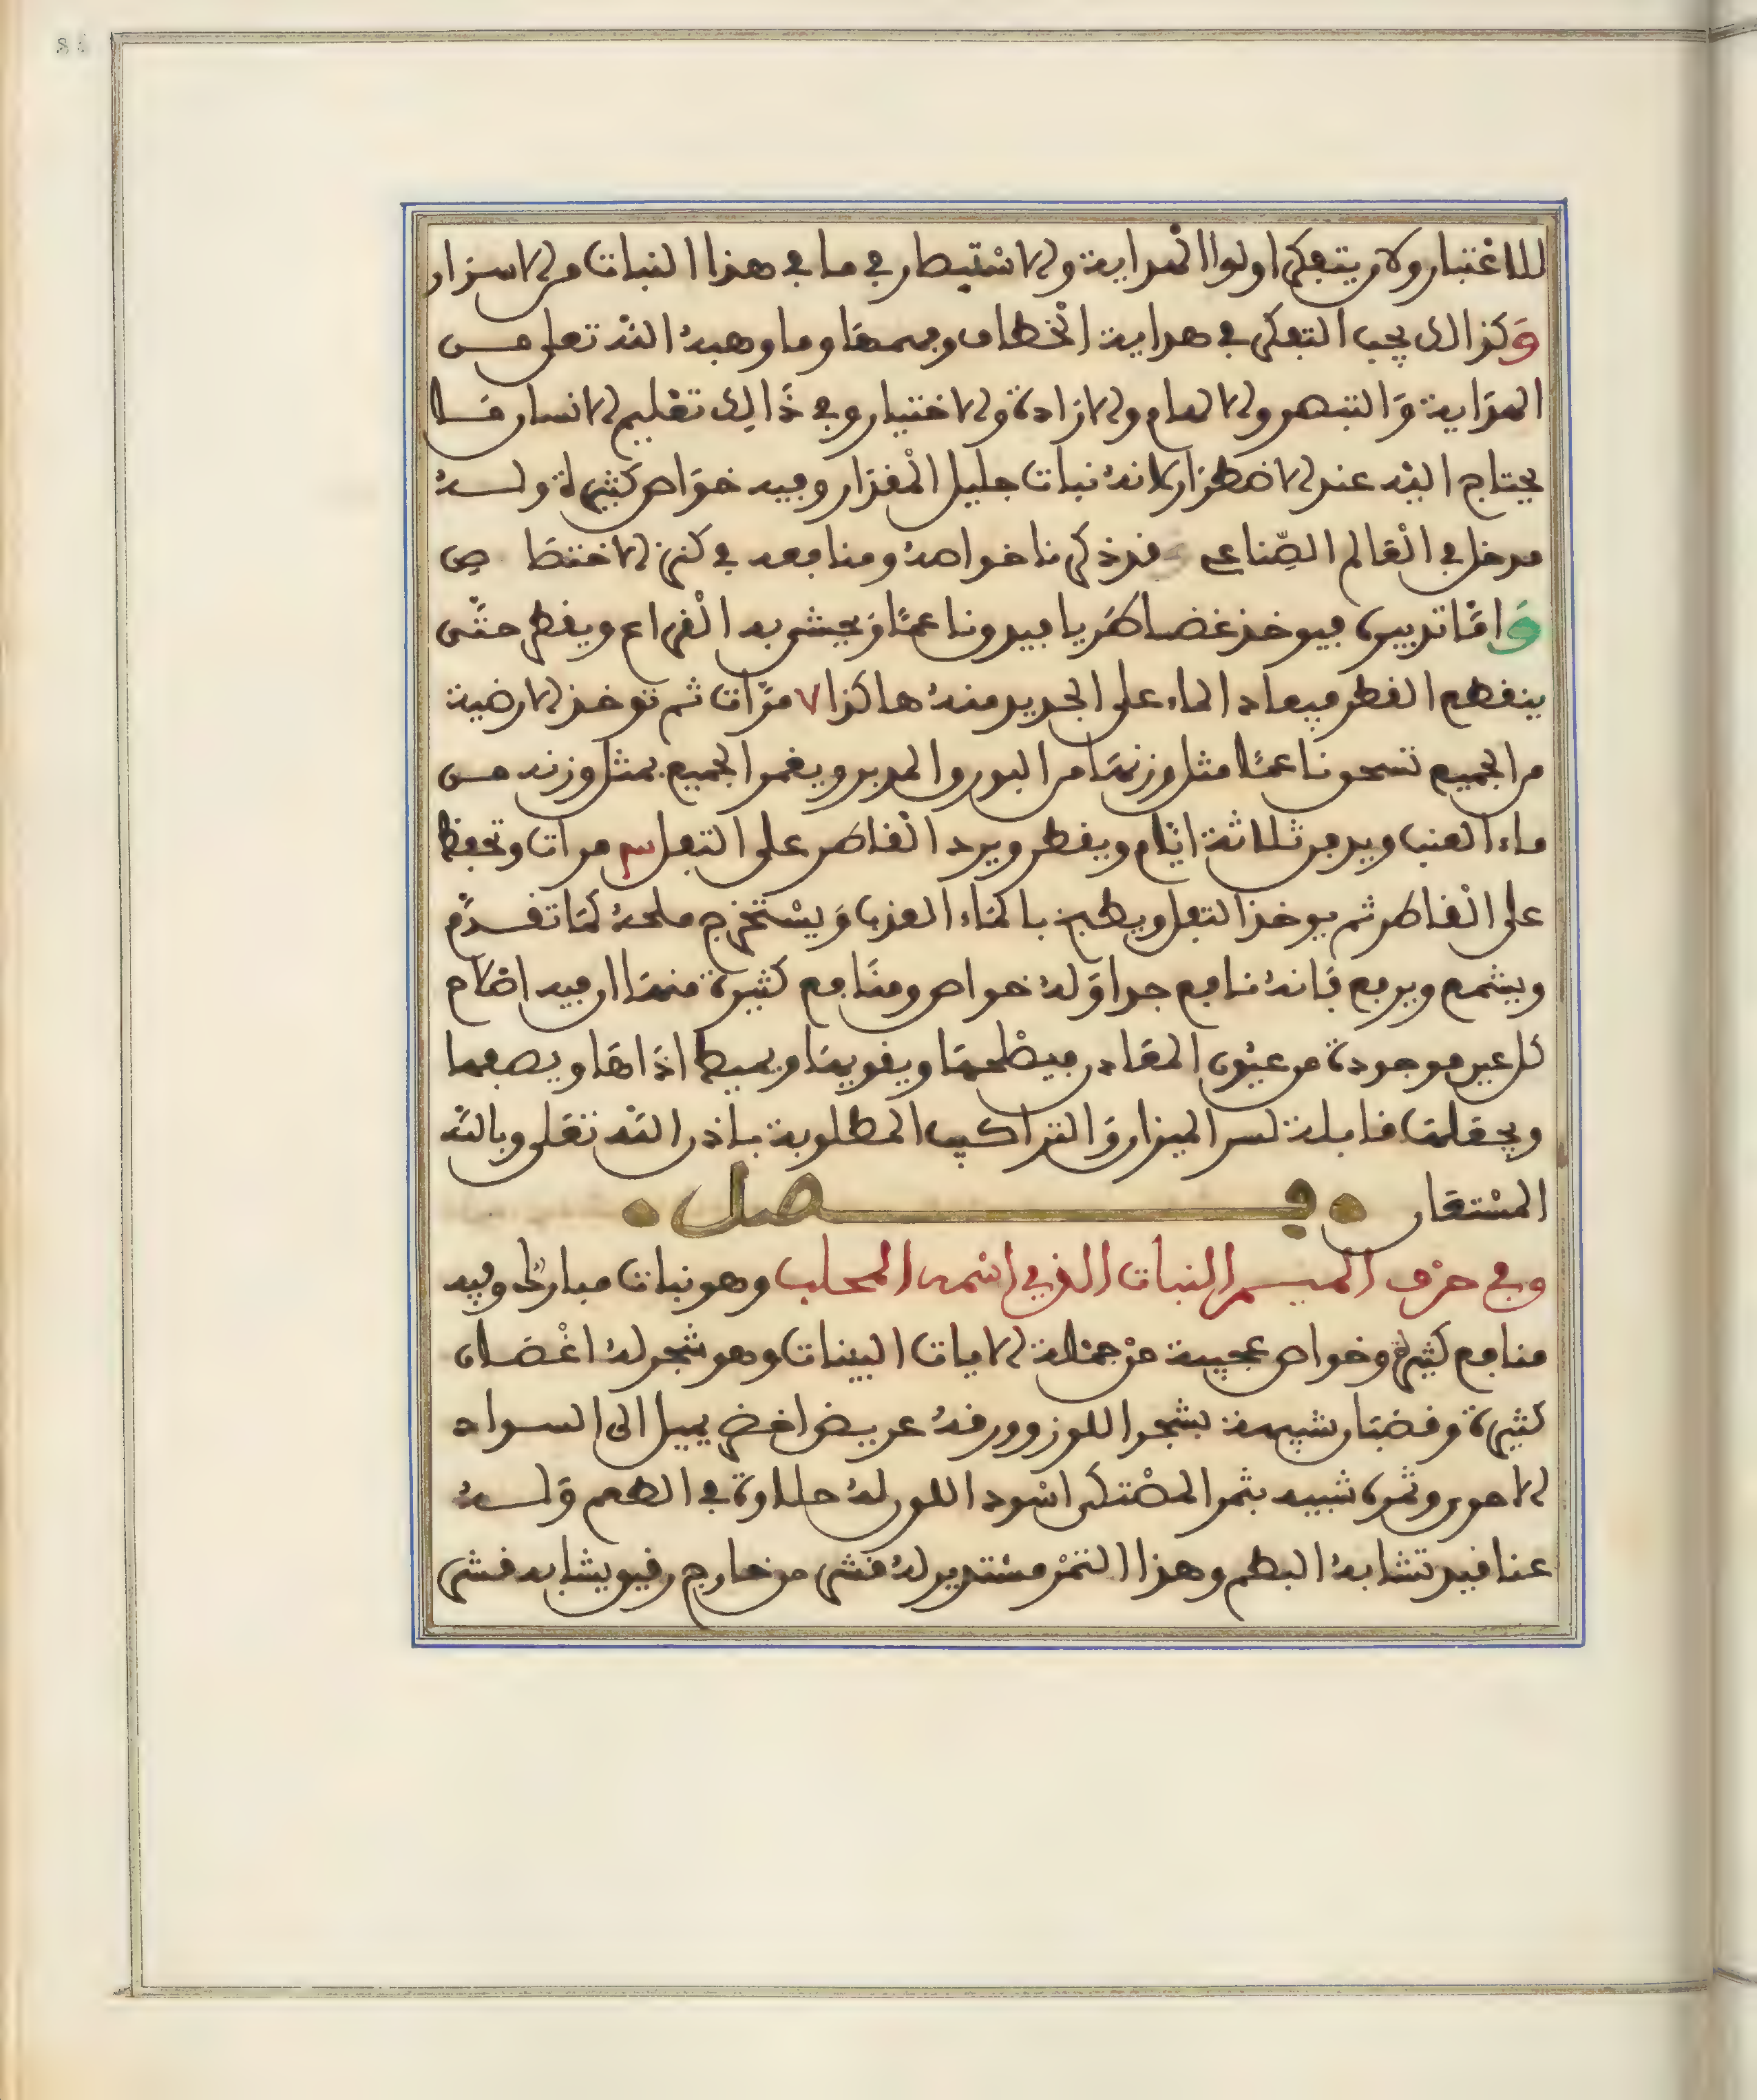 للاعتبار ولان يتفكر اولوا الهداية والاستبصار في ما في هذا النبات من الاسرار
وَكذالك يجب التفكر في هداية الخطاف وفهمها وما وهبه الله تعلى مــن
الهداية وَالتبصر والالهام والارادة والاختيار وفي ذَالِك تعليم الانسان مــا
يحتاج اليه عند الاضطرار لانه نبات جليل المقدار وفيه خوَاص كثيرة ولــه
مدخل في العالم الصِّناعي قد ذكرنا خواصه ومنافعه في كنز الاختصَا صِ
وَامَّا تدبيره فيوخذ غضا طَريا فيدق ناعمًا وَيحشى به القراع ويقطر حتَّى
ينقطع القطر فيعاد الماء على الجديد منه هاكذا ٧ مرَّات ثم توخذ الارضية
من الجميع تسحق ناعمًا مثل وزنهَا من البورق المدبر ويغمر الجميع بمثل وزنه مــن
ماء العنب ويدفن ثلاثة ايَّام ويقطر ويرد القاطر على التفل ٣ مرات وتحفظ
على القاطر ثم يوخذ التفل ويطبخ بالمَاء العذب وَيسْتخرج ملحهُ كمَا تقــدَّم
ويشمع ويرفع فَانهُ نافع جدا وَلهُ خواص ومنَافع كثيرة منهَا ان فيه اضلاح
كل عين موجودة من عيُون المعَادن فيصْلحهَا ويقويهَا ويميط اذَاهَا ويصفيها
ويجعلهَا قابلة لسر الميزان وَالتراكيب المطلوبة باذن الله تعَلى وبالله
المسْتعَان • فــصل •
وفي حرْف الميــم النبات الذي اسْمه المحلب وهو نبات مبارك وفيه
منافع كثيرة وخواص عجيبة منْ جملة الايات البينات وهو شجر لهُ اغْصَــان
كثيرة وقضبَان شبيهة بشجر اللوز وورقهُ عريض اخضر يميل الى الســواد
الاحور وثمره شبيه بثمر المصْتكى اسْود اللون لهُ حلاوة في الطعم وَلــهُ
عناقيد تشابهُ البطم وهذا الثمْر مسْتدير لهُ قشر من خارج رقيق يشابه قشر